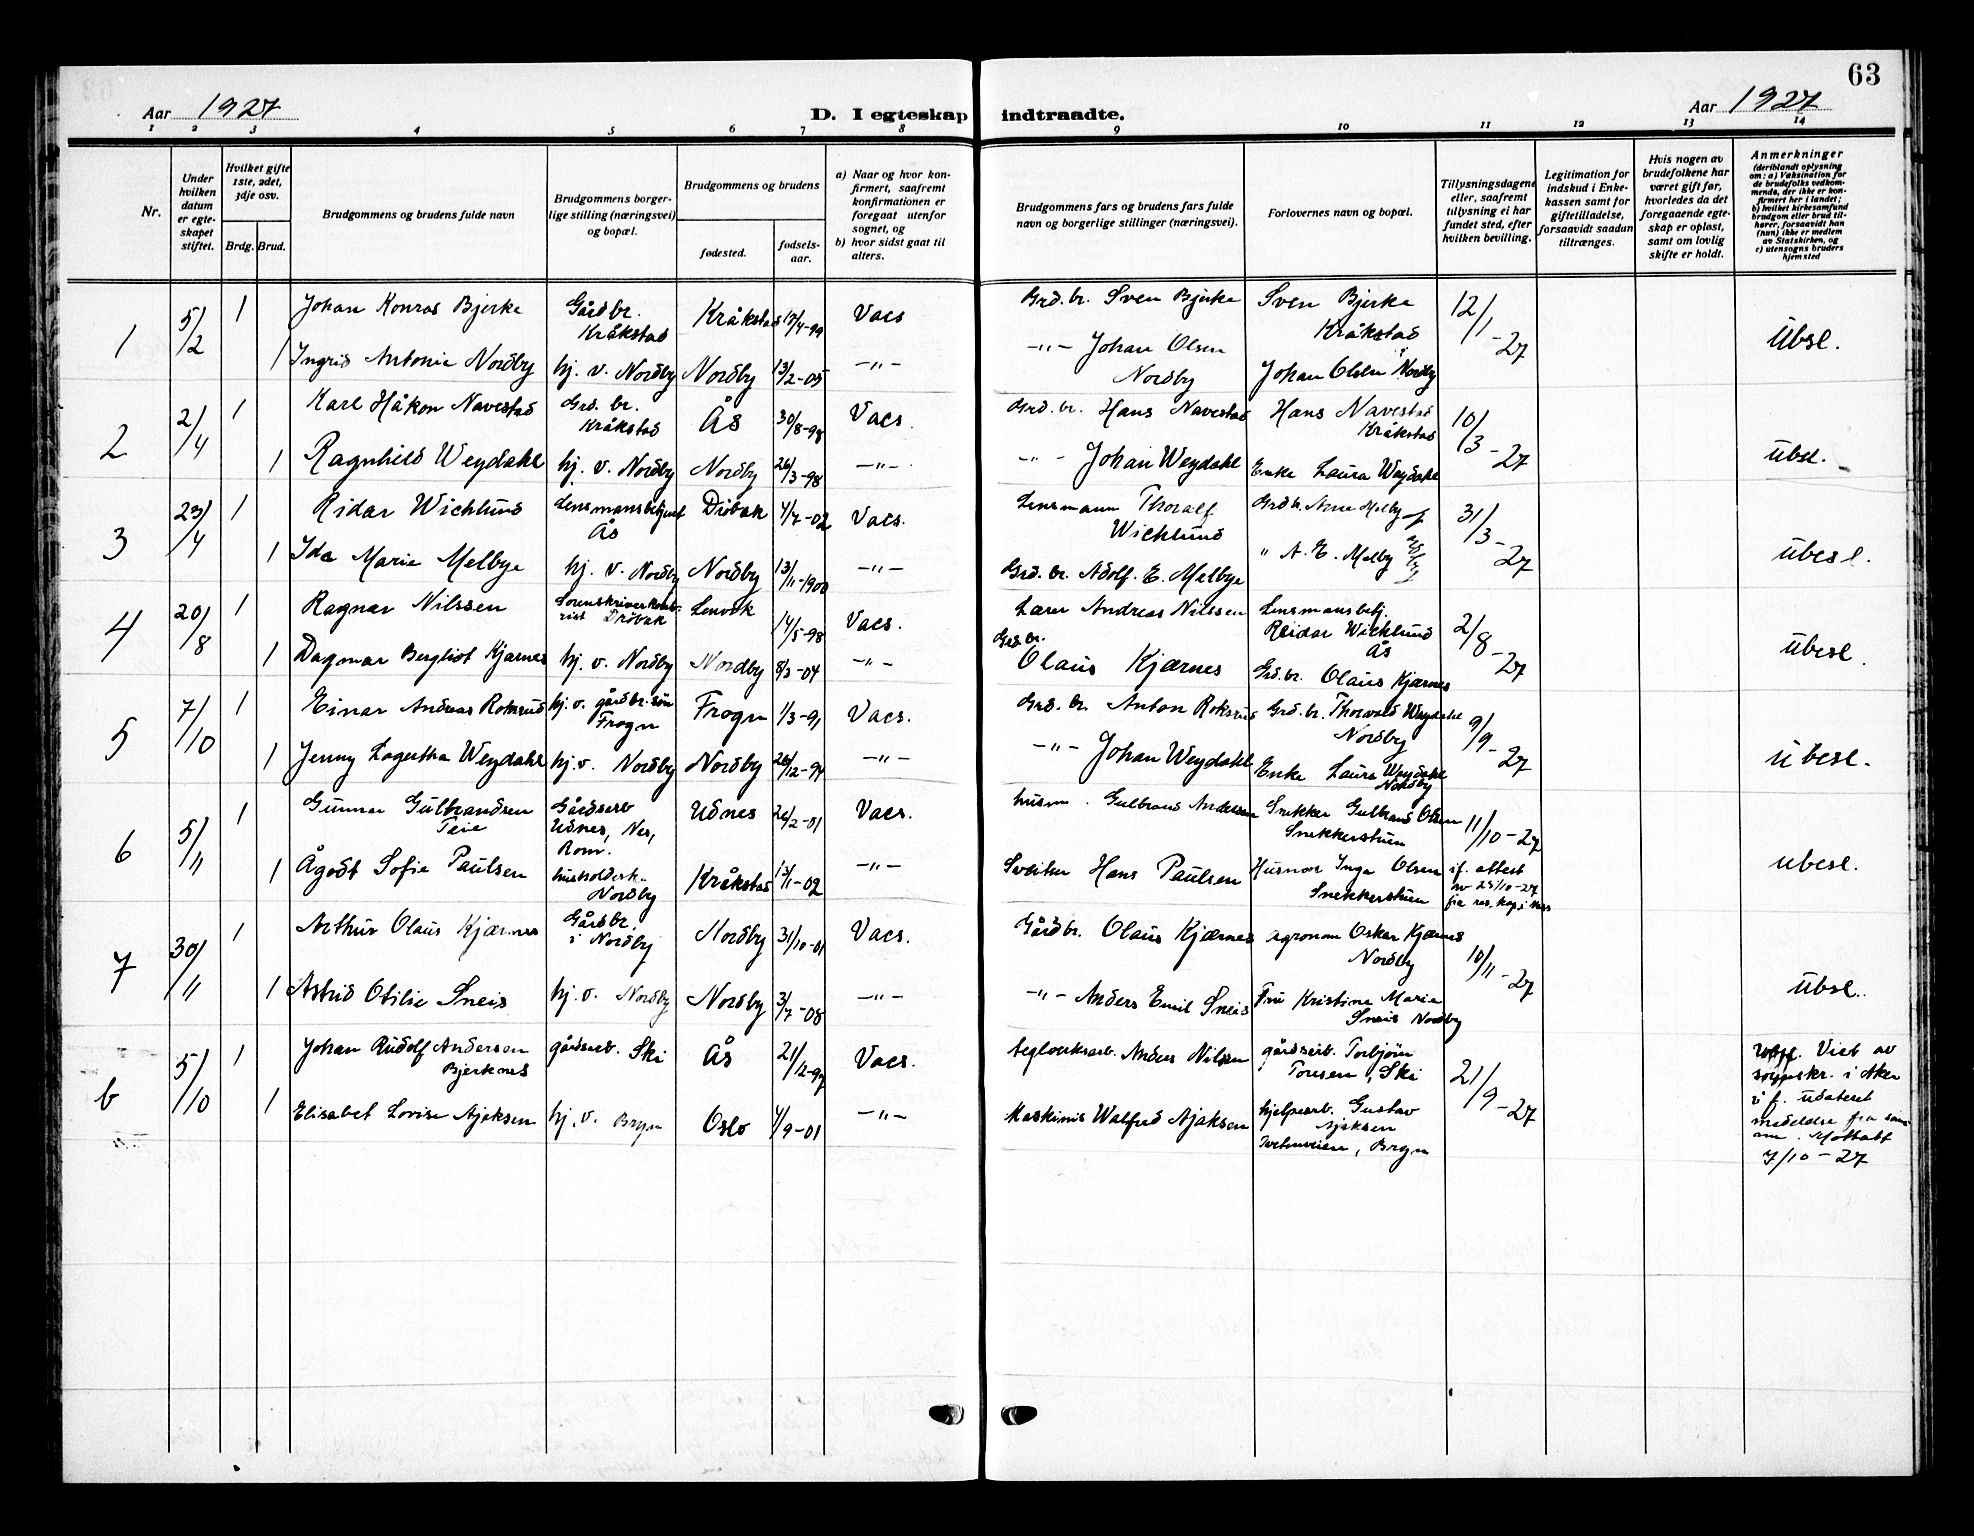 63
Aar 1927
D. I egteskap indtraadte.
Aar 1927
1 2 3 4 5 6 7 8 9 10 11 12 13 14
Nr.
Under hvilken datum er egteskapet stiftet.
Hvilket gifte 1ste, 2det, 3dje osv.
Brdg. Brud.
Brudgommens og brudens fulde navn
Brudgommens borgerlige stilling (næringsvei) og bopæl.
Brudgommens og brudens
fødested.
fødselsaar.
a) Naar og hvor konfirmert, saafremt konfirmationen er foregaat utenfor sognet, og
b) hvor sidst gaat til alters.
Brudgommens fars og brudens fars fulde navn og borgerlige stillinger (næringsvei).
Forlovernes navn og bopæl.
Tillysningsdagene eller, saafremt tillysning ei har fundet sted, efter hvilken bevilling.
Legitimation for indskud i Enkekassen samt for giftetilladelse, forsaavidt saadan tiltrænges.
Hvis nogen av brudefolkene har været gift før, hvorledes da det foregaaende egteskap er opløst, samt om lovlig skifte er holdt.
Anmerkninger
(deriblandt oplysning om: a) Vaksination for de brudefolks vedkommende, der ikke er konfirmert her i landet; b) hvilket kirkesamfund brudgom eller brud tilhører, forsaavidt han (hun) ikke er medlem av Statskirken, og c) utensogns bruders hjemsted
1 5/2 1 Johan Konrad Bjerke Gårdbr. Kråkstad Kråkstad 17/4-99 Vacs Grd. br. Sven Bjerke Sven Bjerke Kråkstad 12/1-27 Ubsl.
1 Ingrid Antonie Nordby hj. v. Nordby Nordby 13/2-05 -"- -"- Johan Olsen Nordby Johan Olsen i Nordby
2 2/4 1 Karl Håkon Navestad Grd. br. Kråkstad Ås 30/8-98 Vacs. Grd. br. Hans Navestad Hans Navestad Kråkstad 10/3-27 Ubsl.
1 Ragnhild Weydahl hj. v. Nordby Nordby 26/3-98 -"- -"- Johan Weydahl Enke Laura Weydahl
3 23/4 1 Ridar Wichlund Lensmansbetjent Ås Drøbak 4/7-02 Vacs. Lensmann Thoralf Wichlund Grdbr. Arne Melby 31/3-27 Ubesl.
1 Ida Marie Melbye hj. v. Nordby Nordby 13/11-1900 -"- Grd. br. Adolf. E. Melbye " A. E. Melby Nordby
4 20/8 1 Ragnar Nilssen Sorenskriverkontorist Drøbak Lenvik 14/5-98 Vacs. Lærer Andreas Nilssen Lensmansbetj. Reidar Wichlund Ås 2/8-27 Ubesl.
1 Dagmar Bergliot Kjærnes hj. v. Nordby Nordby 8/3-04 -"- Grd. br. Olaus Kjærnes Grd. br. Olaus Kjærnes
5 7/10 1 Einar Andreas Roksrud hj. v. gårdbr. søn Frogn Frogn 1/3-91 Vacs. Grd. br. Anton Roksrud Grd. br. Thorvald Weydahl Nordby 9/9-27 Ubesl.
1 Jenny Lagertha Weydahl hj. v. Nordby Nordby 26/12-94 -"- -"- Johan Weydahl Enke Laura Weydahl Nordby
6 5/11 1 Gunnar Gulbrandsen Teie Gårdsarb Udnes, Nes, Rom. Udnes 26/2-01 Vacs. husm. Gulbrand Andersen Snekker Gulbrand Olsen Snekkerstuen 11/10-27 Ubesl.
1 Ågodt Sofie Paulsen husholdersk. Nordby Kråkstad 13/11-02 -"- Sveitser Hans Paulsen Husmor Inga Olsen Snekkerstuen if. attest av 25/10-27 fra res. kap. i Nes
7 30/11 1 Arthur Olaus Kjærnes Gårdbr. i Nordby Nordby 31/10-01 Vacs. Gårdbr. Olaus Kjærnes agronom Oskar Kjærnes Nordby 10/11-27 Ubsl.
1 Astrid Otilie Sneis hj. v. Nordby Nordby 3/7-08 -"- -"- Anders Emil Sneis Fru Kristine Marie Sneis Nordby
b 5/10 1 Johan Rudolf Andersen Bjerknes gårdsarb. Ski Ås 21/12-97 Vacs. teglverksarb. Anders Nilsen gårdsarb. Torbjørn Tonsen, Ski 21/9-27 Viet av sognskr. i Aker if. udateret meddelse fra samme. Mottatt 7/10-27
1 Elisabet Lovise Ajaksen hj. v. Bryn Oslo 4/9-01 -"- Maskinis Walfred Ajaksen hjelpearb. Gustav Ajaksen Tvetenveien, Bryn